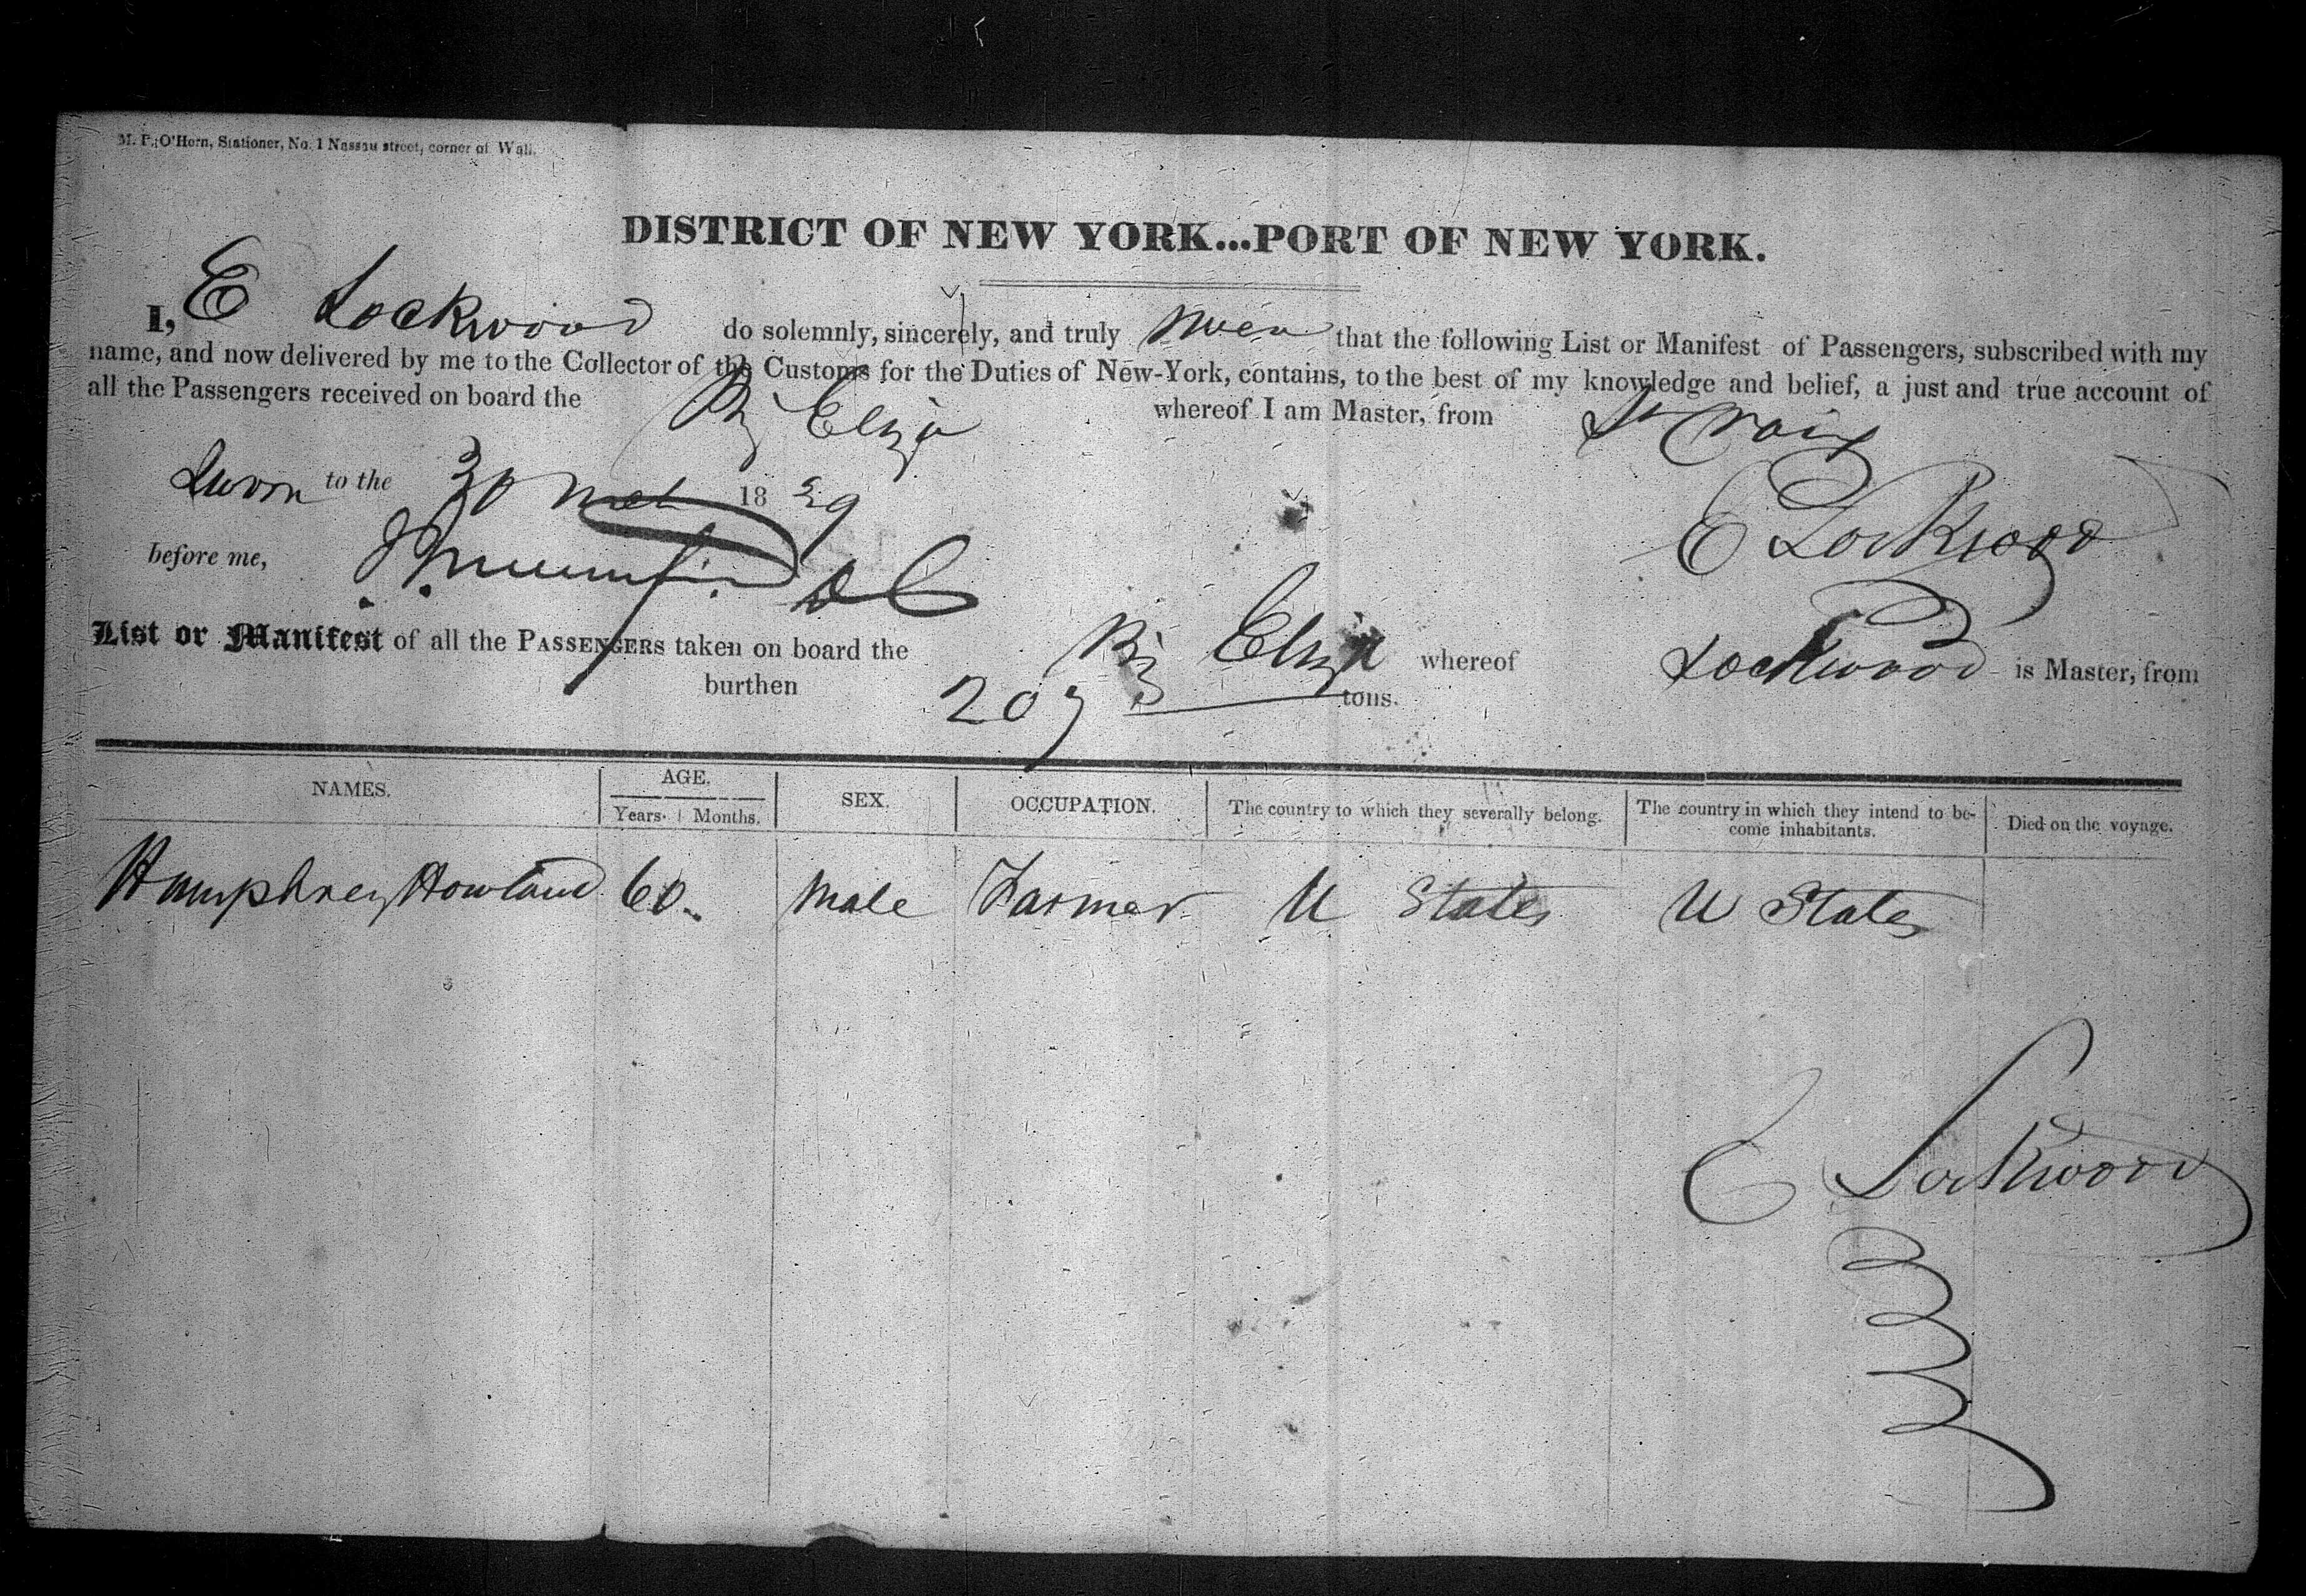 M. P. O'Horn, Stationer, No. 1 Nassau street, corner of Wall.
DISTRICT OF NEW YORK...PORT OF NEW YORK.
I, E Lockwood do solemnly, sincerely, and truly swear that the following List or Manifest of Passengers, subscribed with my
name, and now delivered by me to the Collector of the Customs for the Duties of New-York, contains, to the best of my knowledge and belief, a just and true account of
all the Passengers received on board the Brig Eliza whereof I am Master, from St Croix
Sworn to the 30 Mch 1839
E Lockwood
before me, DC
List or Manifest of all the PASSENGERS taken on board the Brig Eliza whereof Lockwood is Master, from
burthen 207 tons.
NAMES. AGE. Years. Months. SEX. OCCUPATION. The country to which they severally belong. The country in which they intend to be-
come inhabitants. Died on the voyage.
Humphrey Howland 60 Male Farmer U States U States
E Lockwood